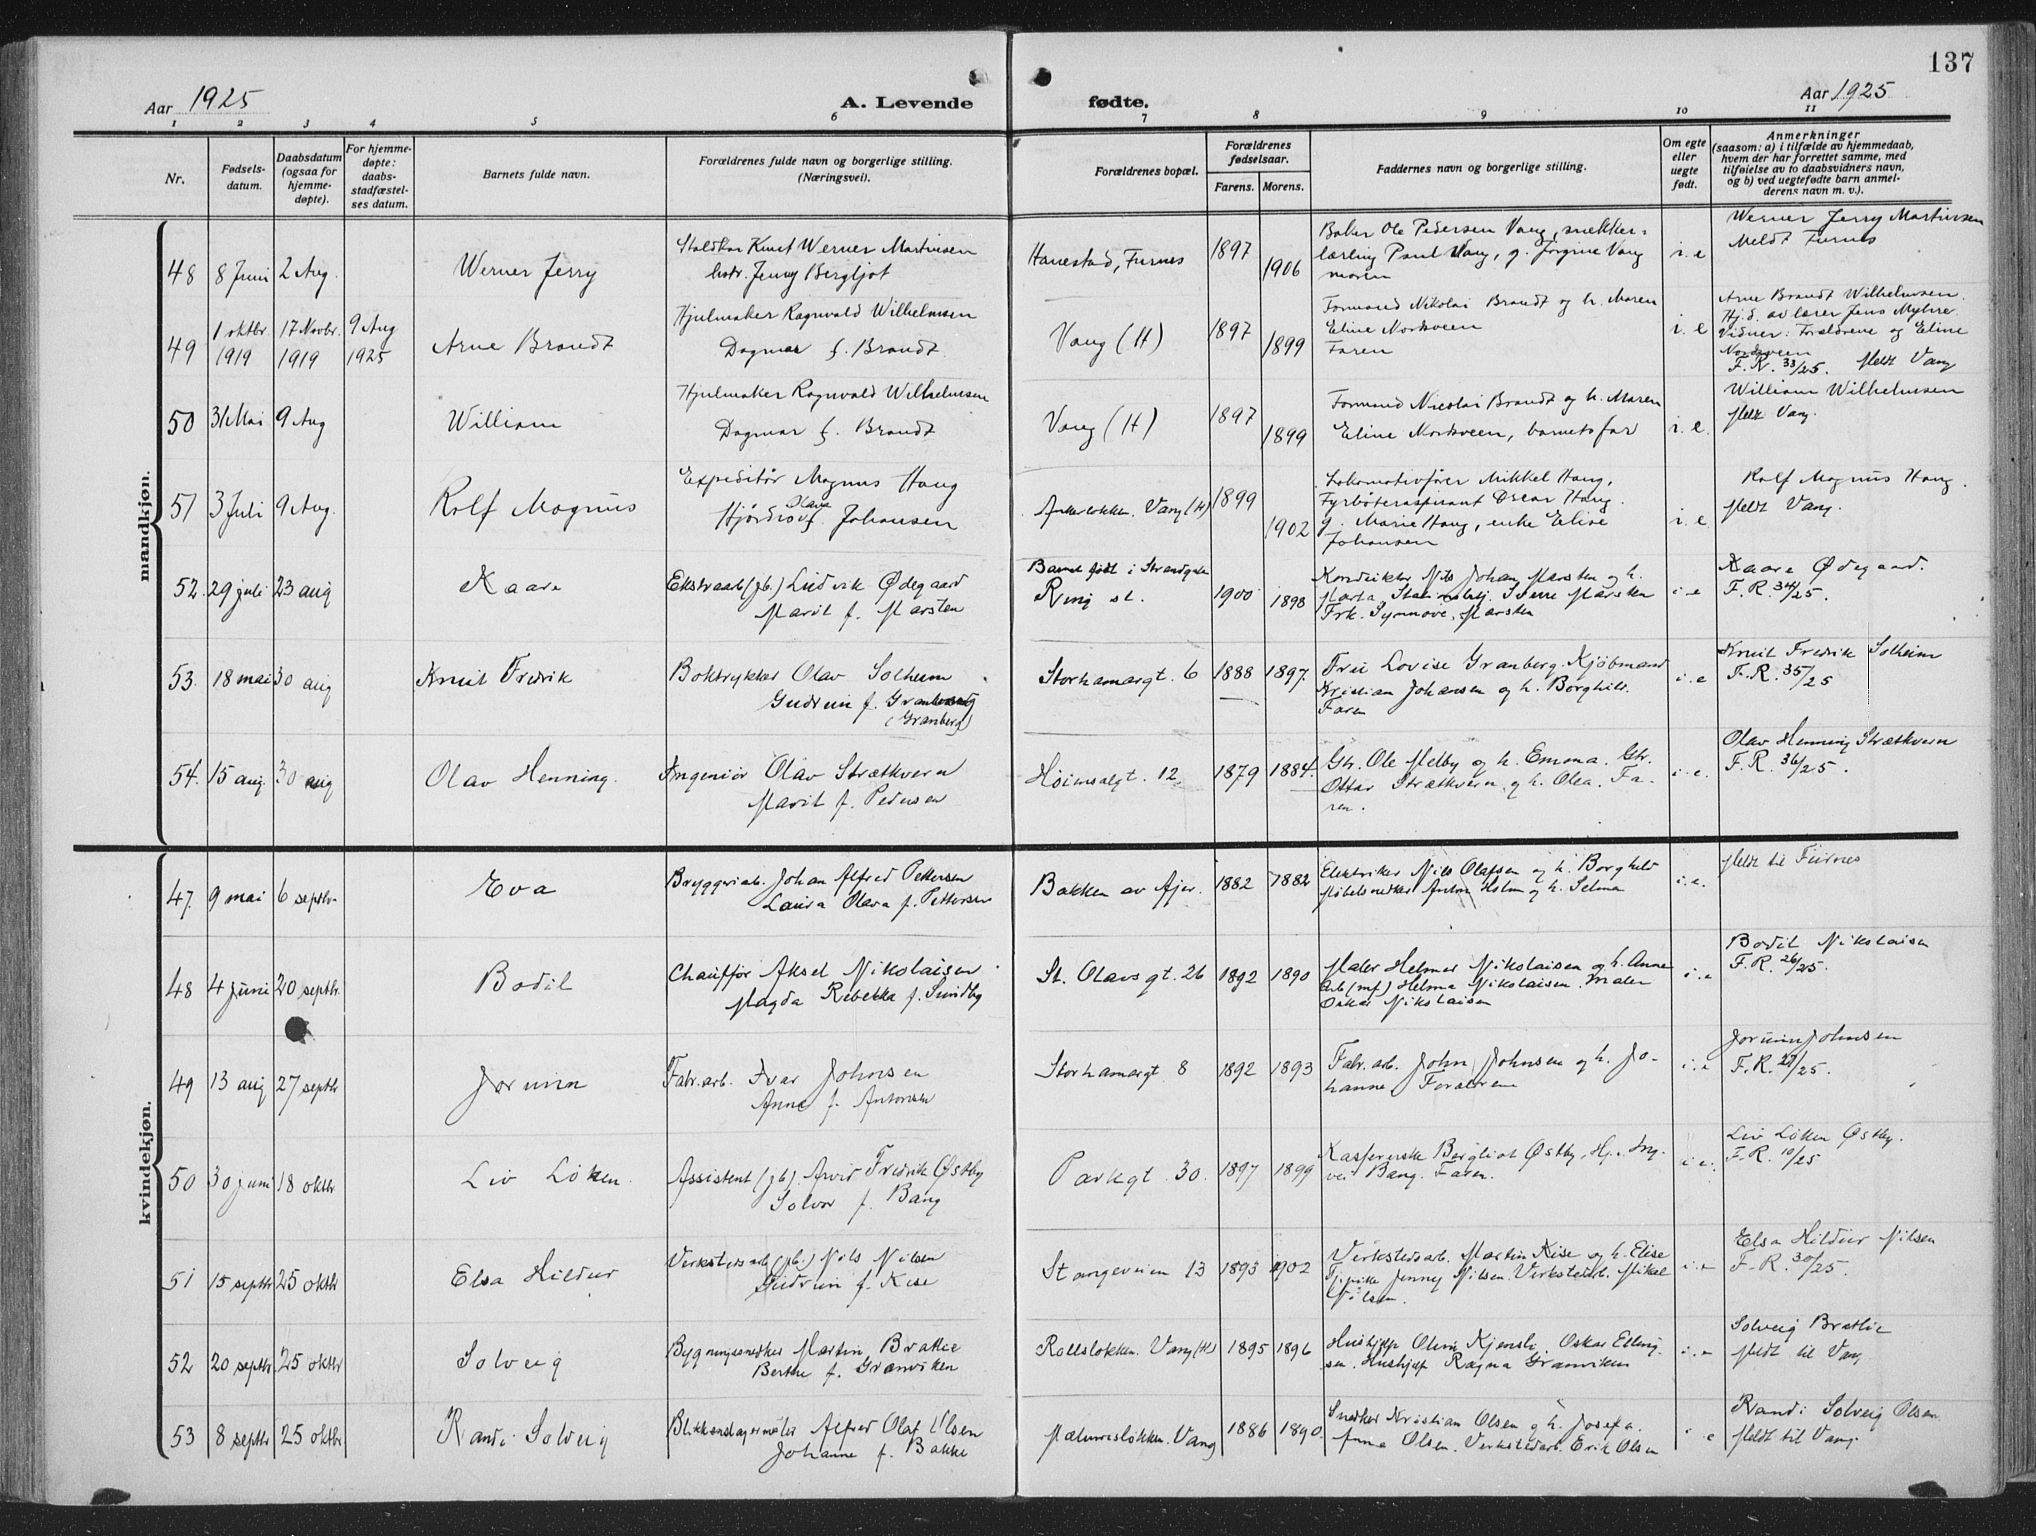 137
Aar 1925
A. Levende fødte.
Aar 1925
1 2 3 4 5 6 7 8 9 10 11
Nr.
Fødsels-
datum.
Daabsdatum
(ogsaa for
hjemme-
døpte).
For hjemme-
døpte:
daabs-
stadfæstel-
ses datum.
Barnets fulde navn.
Forældrenes fulde navn og borgerlige stilling.
(Næringsvei).
Forældrenes bopæl.
Forældrenes
fødselsaar.
Farens. Morens.
Faddernes navn og borgerlige stilling.
Om egte
eller
uegte
født.
Anmerkninger
(saasom: a) i tilfælde av hjemmedaab,
hvem der har forrettet samme, med
tilføielse av to daabsvidners navn,
og b) ved uegtefødte barn anmel-
derens navn m. v.).
mandkjøn.
48 8 Juni 2 Aug. Werner Jerry
Knut Werner Martinsen
Jenny Bergljot
Hanestad, Furnes 1897 1906
Baker Ole Pedersen Vang, snekker-
lærling Paul Vang, g. Jørgine Vang
moren
i. e
Werner Jerry Martinsen
Meldt Furnes
49 1 oktbr. 1919 17 Novbr. 1919 9 Aug 1925 Arne Brandt
Hjulmaker Ragnvald Wilhelmsen
Dagmar f. Brandt
Vang (H) 1897 1899
Formand Nikolai Brandt og h. Maren
Eline Norkveen
Faren
i. e
Arne Brandt Wilhelmsen.
Hj.d. av lærer Jens Myhre.
Vidner: Forældrene og Eline
F. R. 33/25. Meldt Vang
50 31 Mai 9 Aug William
Hjulmaker Ragnvald Wilhelmsen
Dagmar f. Brandt
Vang (H) 1897 1899
Formand Nicolai Brandt og h. Maren
Eline Norkveen, barnets far
i. e.
William Wilhelmsen
Meldt Vang.
51 3 Juli 9 Aug. Rolf Magnus
Expeditør Magnus Haug
Olava
Hjørdis f. Johansen
Ankerløkken. Vang (H) 1899 1902
Lokomotivfører Mikkel Haug,
Fyrbøteraspirant Oscar Haug.
g. Marie Haug, enke Elise
Johansen
i. e
Rolf Magnus Haug.
Meldt Vang.
52. 29 juli 23 aug Kaare
Ekstraarb. (jb.) Ludvik Ødegaard
Marit f. Marsten
Barnet født i Strandgaten
Ring st. 1900 1898
Konduktør Nils Johan Marsten og h.
Marta. Sverre Marsten
Frk. Synnøve Marsten
i. e
Kaare Ødegaard.
F. R. 34/25.
53. 18 mai 30 aug Knut Fredrik
Boktrykker Olav Solheim
Gudrun f.
(Granberg)
Storhamargt. 6 1888 1897.
Fru Lovise Granberg. Kjøbmand
Kristian Johansen og h. Borghild.
Faren
i. e
Knut Fredrik Solheim
F. R. 35/25
54. 15 aug. 30 aug Olav Henning.
Ingeniør Olav Strætkvern
Marit f. Pedersen
Høiensalgt. 12. 1879 1884.
Gbr. Ole Melby og h. Emma. Gbr.
Ottar Strætkvern og h. Olea. Fa-
ren.
i. e.
Olav Henning Strætkvern
F. R. 36/25.
kvindekjøn.
47. 9 mai 6 septbr Eva
Bryggeriarb. Johan Alfred Pettersen
Laura Olava f. Pettersen
Bakken av Ajer. 1882 1882
Elektriker Nils Olafsen og h. Borghild
Møbelsnedker Anton Holm og h. Selma
i. e.
Meldt til Furnes
48 4 juni 20 septbr. Bodil
Chauffør Aksel Nikolaisen
Magda Rebekka f. Sundby
St. Olavs gt. 26 1892 1890
Maler Helmer Nikolaisen og h. Anne
Arb (mf.) Helma Nikolaisen. Maler
Oskar Nikolaisen
i. e
Bodil Nikolaisen
F. R. 26/25.
49 13 aug 27 septbr Jorunn
Fabr.arb. Ivar Johnsen
Anna f. Antonsen
Storhamargt. 8 1892 1893
Fabr.arb. John Johnsen og h. Jo-
hanne Forældrene
i. e
Jorunn Johnsen
F. R. 27/25.
50 30 juni 18 oktbr Liv Løken.
Assistent (jb.) Arvid Fredrik Østby
Solvor f. Bang
Parkgt. 30. 1897 1899
Kassererske Bergliot Østby. Hj. Ing-
vei Bang. Faren.
i. e.
Liv Løken Østby.
F. R. 10/25
51 15 septbr 25 oktbr Elsa Hildur
Verkstedsarb. (jb.) Nils Nilsen
Gudrun f. Kise
Stangeveien 13 1893 1902
Verkstedsarb. Martin Kise og h. Elise
Tj.pike Jenny Nilsen. Verkstedarb. Mikal
Nilsen.
i. e
Elsa Hildur Nilsen
F. R. 30/25.
52 20 septbr 25 oktbr Solveig
Bygningssnedker Martin Bratlie
Berthe f. Grønviken
Rollsløkken. Vang (H) 1895 1896
Hushjelp Oline Kjensli. Oskar Elling-
sen. Hushjelp Ragna Grønviken
i. e
Solveig Bratlie
Meldt til Vang
53 8 septbr 25 oktbr Randi Solveig
Blikkenslagermester Alfred Olaf Olsen
Johanne f. Bakke
Vang 1886 1890.
Snedker Kristian Olsen og h. Josefa.
Anna Olsen. Verkstedarb. Erik Olsen
i e
Randi Solveig Olsen.
Meldt til Vang.